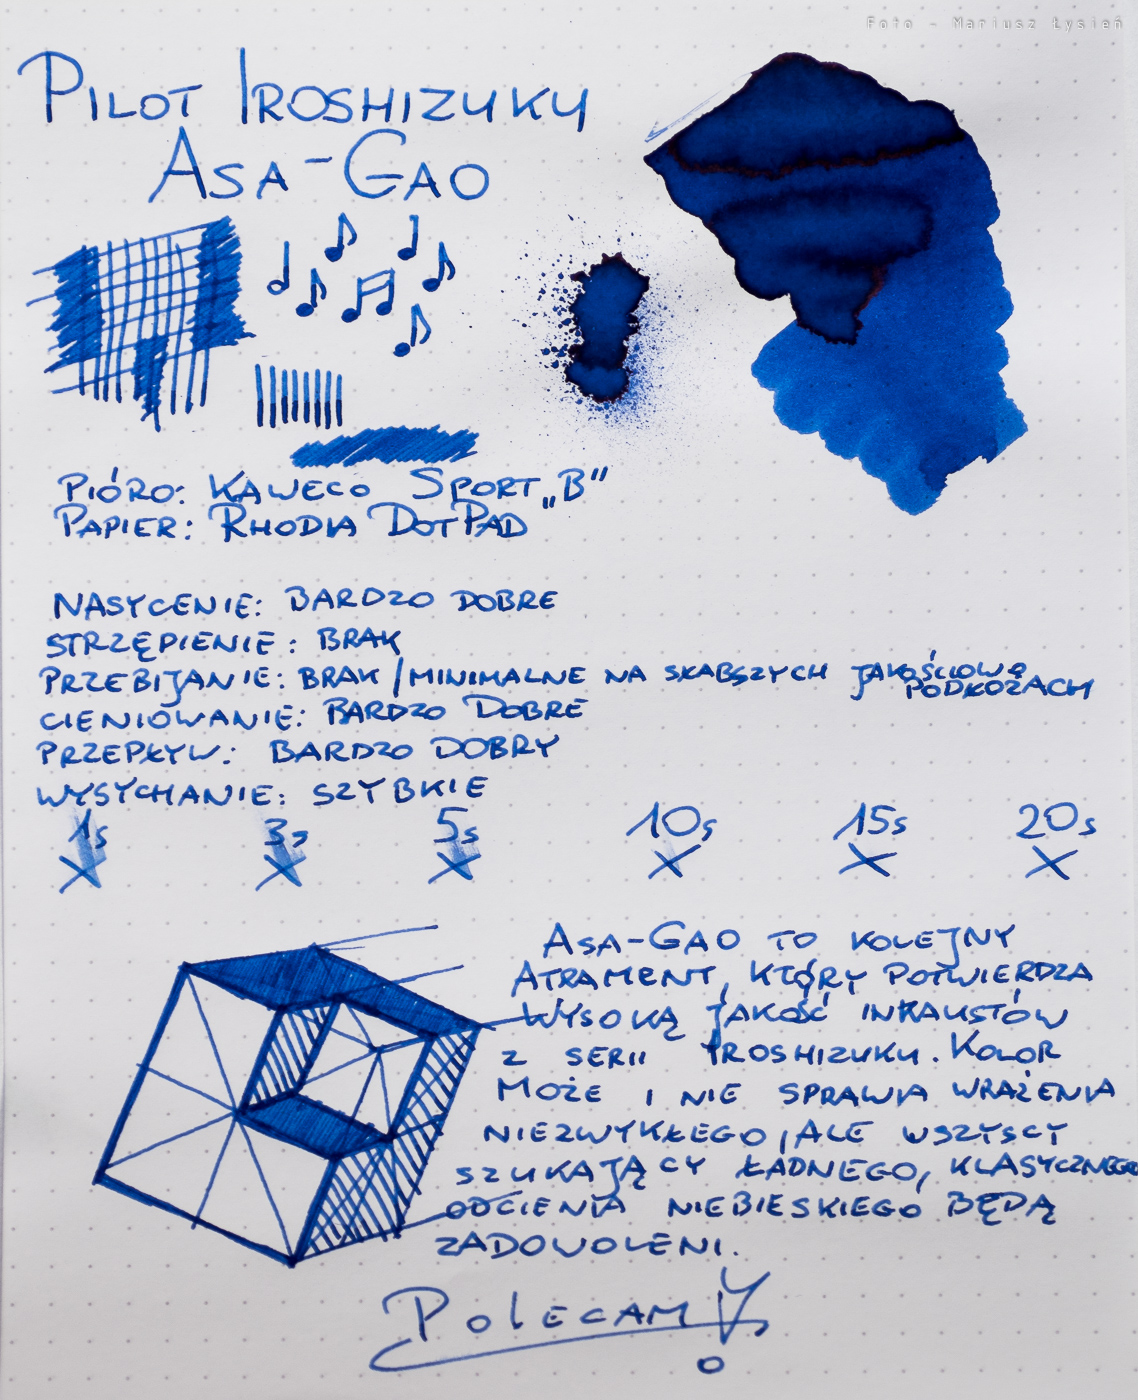 Foto - Mariusz Łysień
PILOT IROSHIZUKU
ASA-GAO
PIÓRO: KAWECO SPORT „B"
PAPIER: RHODIA DOTPAD
NASYCENIE: BARDZO DOBRE
STRZĘPIENIE: BRAK
PRZEBIJANIE: BRAK/MINIMALNE NA SKABSZYCH JAKOŚCIOWO
PODKOZACH
CIENIOWANIE: BARDZO DOBRE
PRZEPŁYW: BARDZO DOBRY
WYSYCHANIE: SZYBKIE
1s 3s 5s 10s 15s 20s
ASA-GAO TO KOLEJNY
ATRAMENT, KTÓRY POTWIERDZA
WYSOKĄ JAKOŚĆ INKAUSTÓW
Z SERII IROSHIZUKU. KOLOR
MOŻE I NIE SPRAWIA WRAŻENIA
NIEZWYKŁEGO, ALE WSZYSCY
SZUKAJĄCY ŁADNEGO, KLASYCZNEGO
ODCIENIA NIEBIESKIEGO BĘDĄ
ZADOWOLENI.
POLECAM!